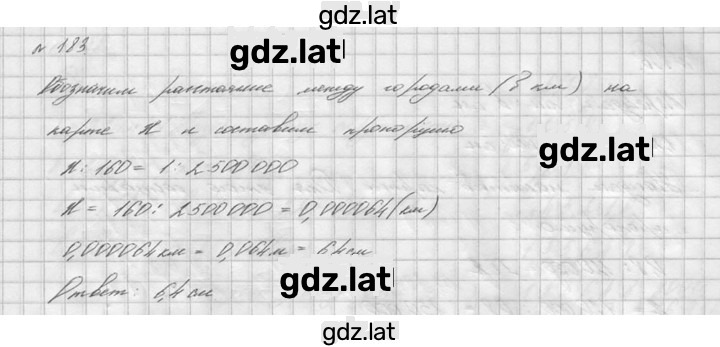 gdz.lat
№ 183
gdz.lat
Обозначим расстояние между городами (В км) на
карте X и составим пропорцию
gdz.lat
X : 160 = 1 : 2 500 000
X = 160 : 2500000 = 0,000064 (км)
0,000064 км = 0,064 м = 6,4 см
gdz.lat
Ответ: 6,4 см
gdz.lat